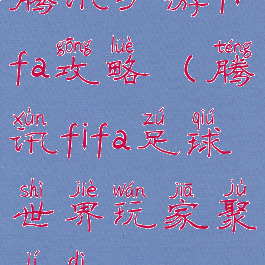 gōng lüè téng
fa攻略（腾
xùn zú qiú
讯fifa足球
shì jiè wán jiā jù
世界玩家聚
jí dì